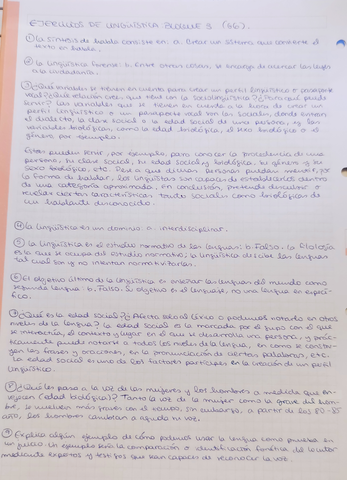 EJERCICIOS DE LINGÜÍSTICA BLOQUE 3 (GG).
① La síntesis de habla consiste en: a. Crear un sistema que convierte el
texto en habla.
② La lingüística forense: b. Entre otras cosas, se encarga de acercar las leyes
a la ciudadanía.
③ ¿Qué variables se tienen en cuenta para crear un perfil lingüístico o pasaporte
vocal? ¿Qué relación crees que tiene con la sociolingüística? ¿Para qué puede
servir? Las variables que se tienen en cuenta a la hora de crear un
perfil lingüístico o un pasaporte vocal son las sociales, donde entran
el dialecto, la clase social o la edad social de una persona, y las
variables biológicas, como la edad biológica, el sexo biológico o el
género por ejemplo.
Estas pueden servir, por ejemplo, para conocer la procedencia de una
persona, su clase social, su edad social y biológica, su género y su
sexo biológico, etc. Pese a que algunas personas puedan
la forma de hablar, los lingüistas son capaces de establecerlas dentro
de una categoría aproximada, en conclusión, pretende descubrir o
ciertas características tanto sociales como biológicas de
un hablante desconocido.
④ La lingüística es un dominio: a. interdisciplinar.
⑤ La lingüística es el estudio normativo de las lenguas: b. Falso. La filología
es la que se ocupa del estudio normativo, la lingüística describe las lenguas
tal cual son y no intentan normativizarlas.
⑥ El objetivo último de la lingüística es enseñar las lenguas del mundo como
segunda lengua: b. Falso. Su objetivo es el lenguaje, no una lengua en especí-
fico.
⑦ ¿Qué es la edad social? ¿Afecta solo al léxico o podemos notarlo en otros
niveles de la lengua? La edad social es la marcada por el grupo con el que
se interactúa, el contexto y lugar en el que se desarrolla una persona, y prác-
ticamente puede notarse a todos los niveles de la lengua, en como se constru-
yen las frases y oraciones, en la pronunciación de ciertas palabras, etc.
La edad social es uno de los factores partícipes en la creación de un perfil
lingüístico.
⑧ ¿Qué les pasa a la voz de las mujeres y los hombres a medida que en-
vejecen (edad biológica)? Tanto la voz de la mujer como la grave del hom-
bre, se vuelven más graves con el tiempo, sin embargo, a partir de los 80-85
años, los hombres cambian a aguda su voz.
⑨ Explica algún ejemplo de cómo podemos usar la lengua como prueba en
un juicio. Un ejemplo sería la comparación o identificación fonética del locutor
mediante expertos y testigos que sean capaces de reconocer la voz.